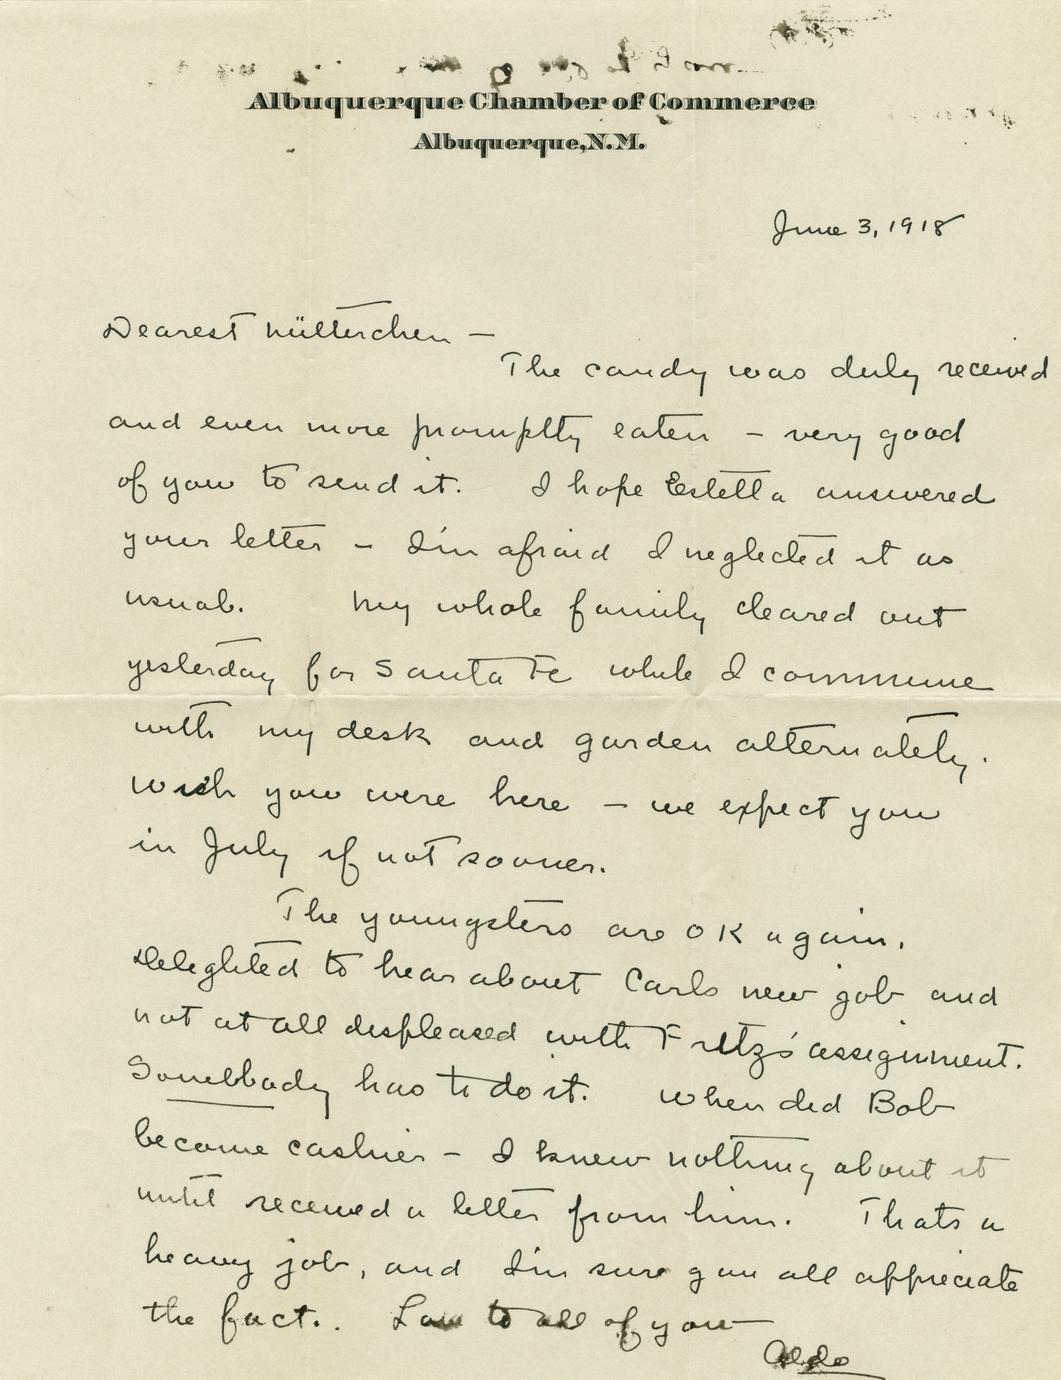 Albuquerque Chamber of Commerce
Albuquerque, N.M.
June 3, 1918
Dearest Mütterchen —
The candy was duly received
and even more promptly eaten — very good
of you to send it. I hope Estella answered
your letter — I'm afraid I neglected it as
usual. My whole family cleared out
yesterday for Santa Fe while I commune
with my desk and garden alternately.
Wish you were here — we expect you
in July if not sooner.
The youngsters are OK again.
Delighted to hear about Carls new job and
not at all displeased with Fritz's assignment.
Somebbody has to do it. When did Bob
become cashier — I knew nothing about it
until received a letter from him. Thats a
heavy job, and I'm sure you all appreciate
the fact. Love to all of you
Aldo